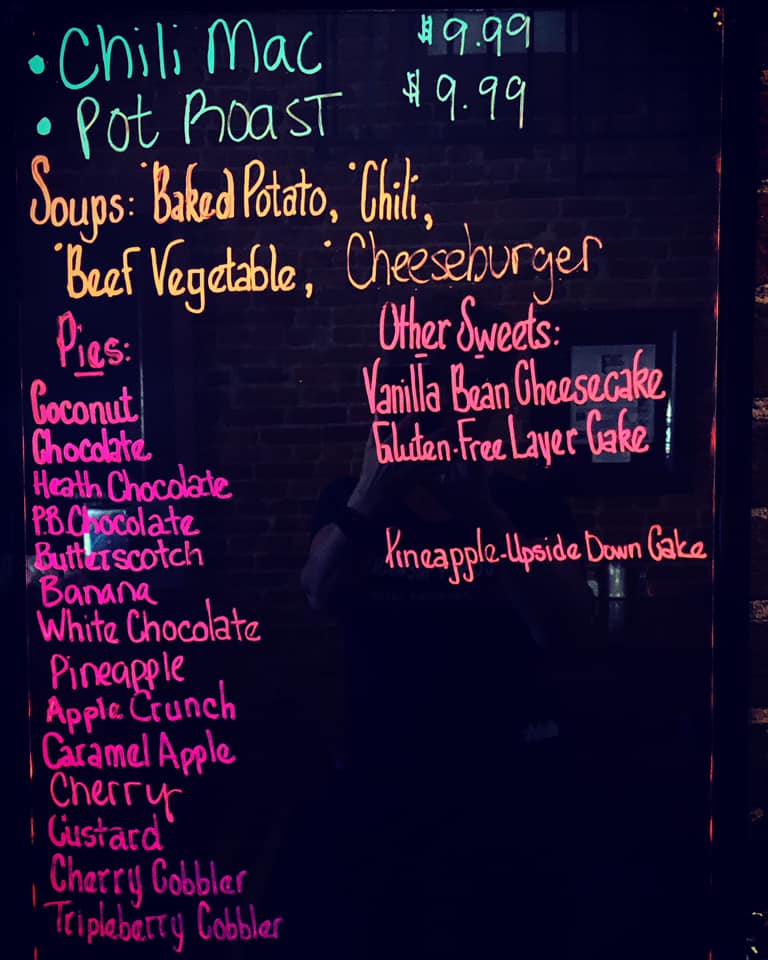 • Chili Mac $9.99
• Pot Roast $9.99
Soups: Baked Potato, Chili,
Beef Vegetable, Cheeseburger
Pies:
Coconut
Chocolate
Heath Chocolate
P.B. Chocolate
Butterscotch
Banana
White Chocolate
Pineapple
Apple Crunch
Caramel Apple
Cherry
Custard
Cherry Cobbler
Tripleberry Cobbler
Other Sweets:
Vanilla Bean Cheesecake
Gluten-Free Layer Cake
Pineapple-Upside Down Cake